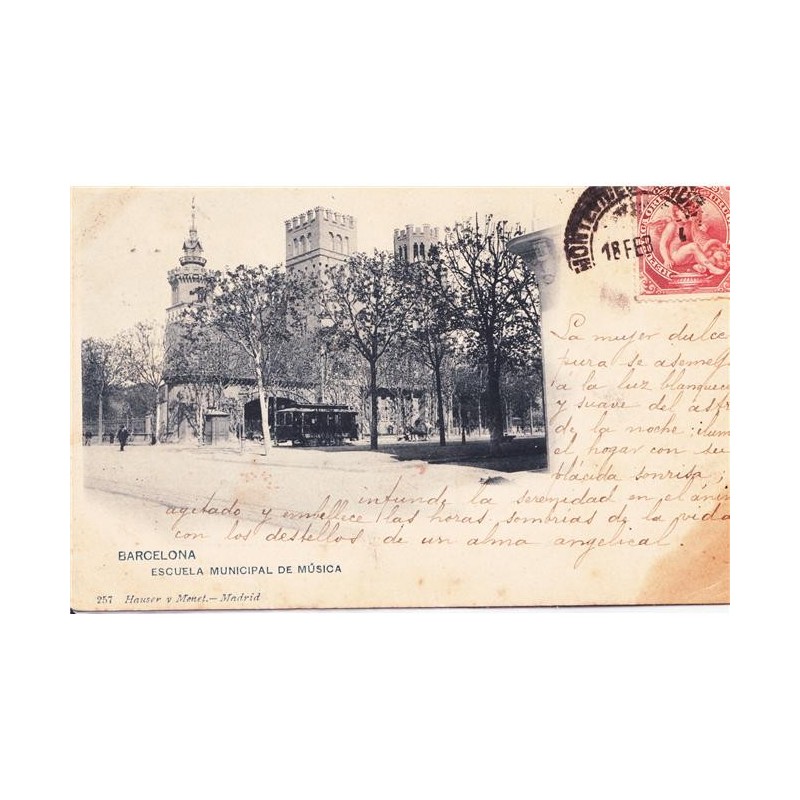 MONTEVIDEO
18 FEB
La mujer dulce
pura se aseme
á la luz blanquec
y suave del ast
de la noche: ilum
el hogar con su
plácida sonrisa;
infunde la serenidad en el áni
agitado y embellece las horas sombrias de la vida
con los destellos de un alma angelical.
BARCELONA
ESCUELA MUNICIPAL DE MÚSICA
257 Hauser y Menet.—Madrid